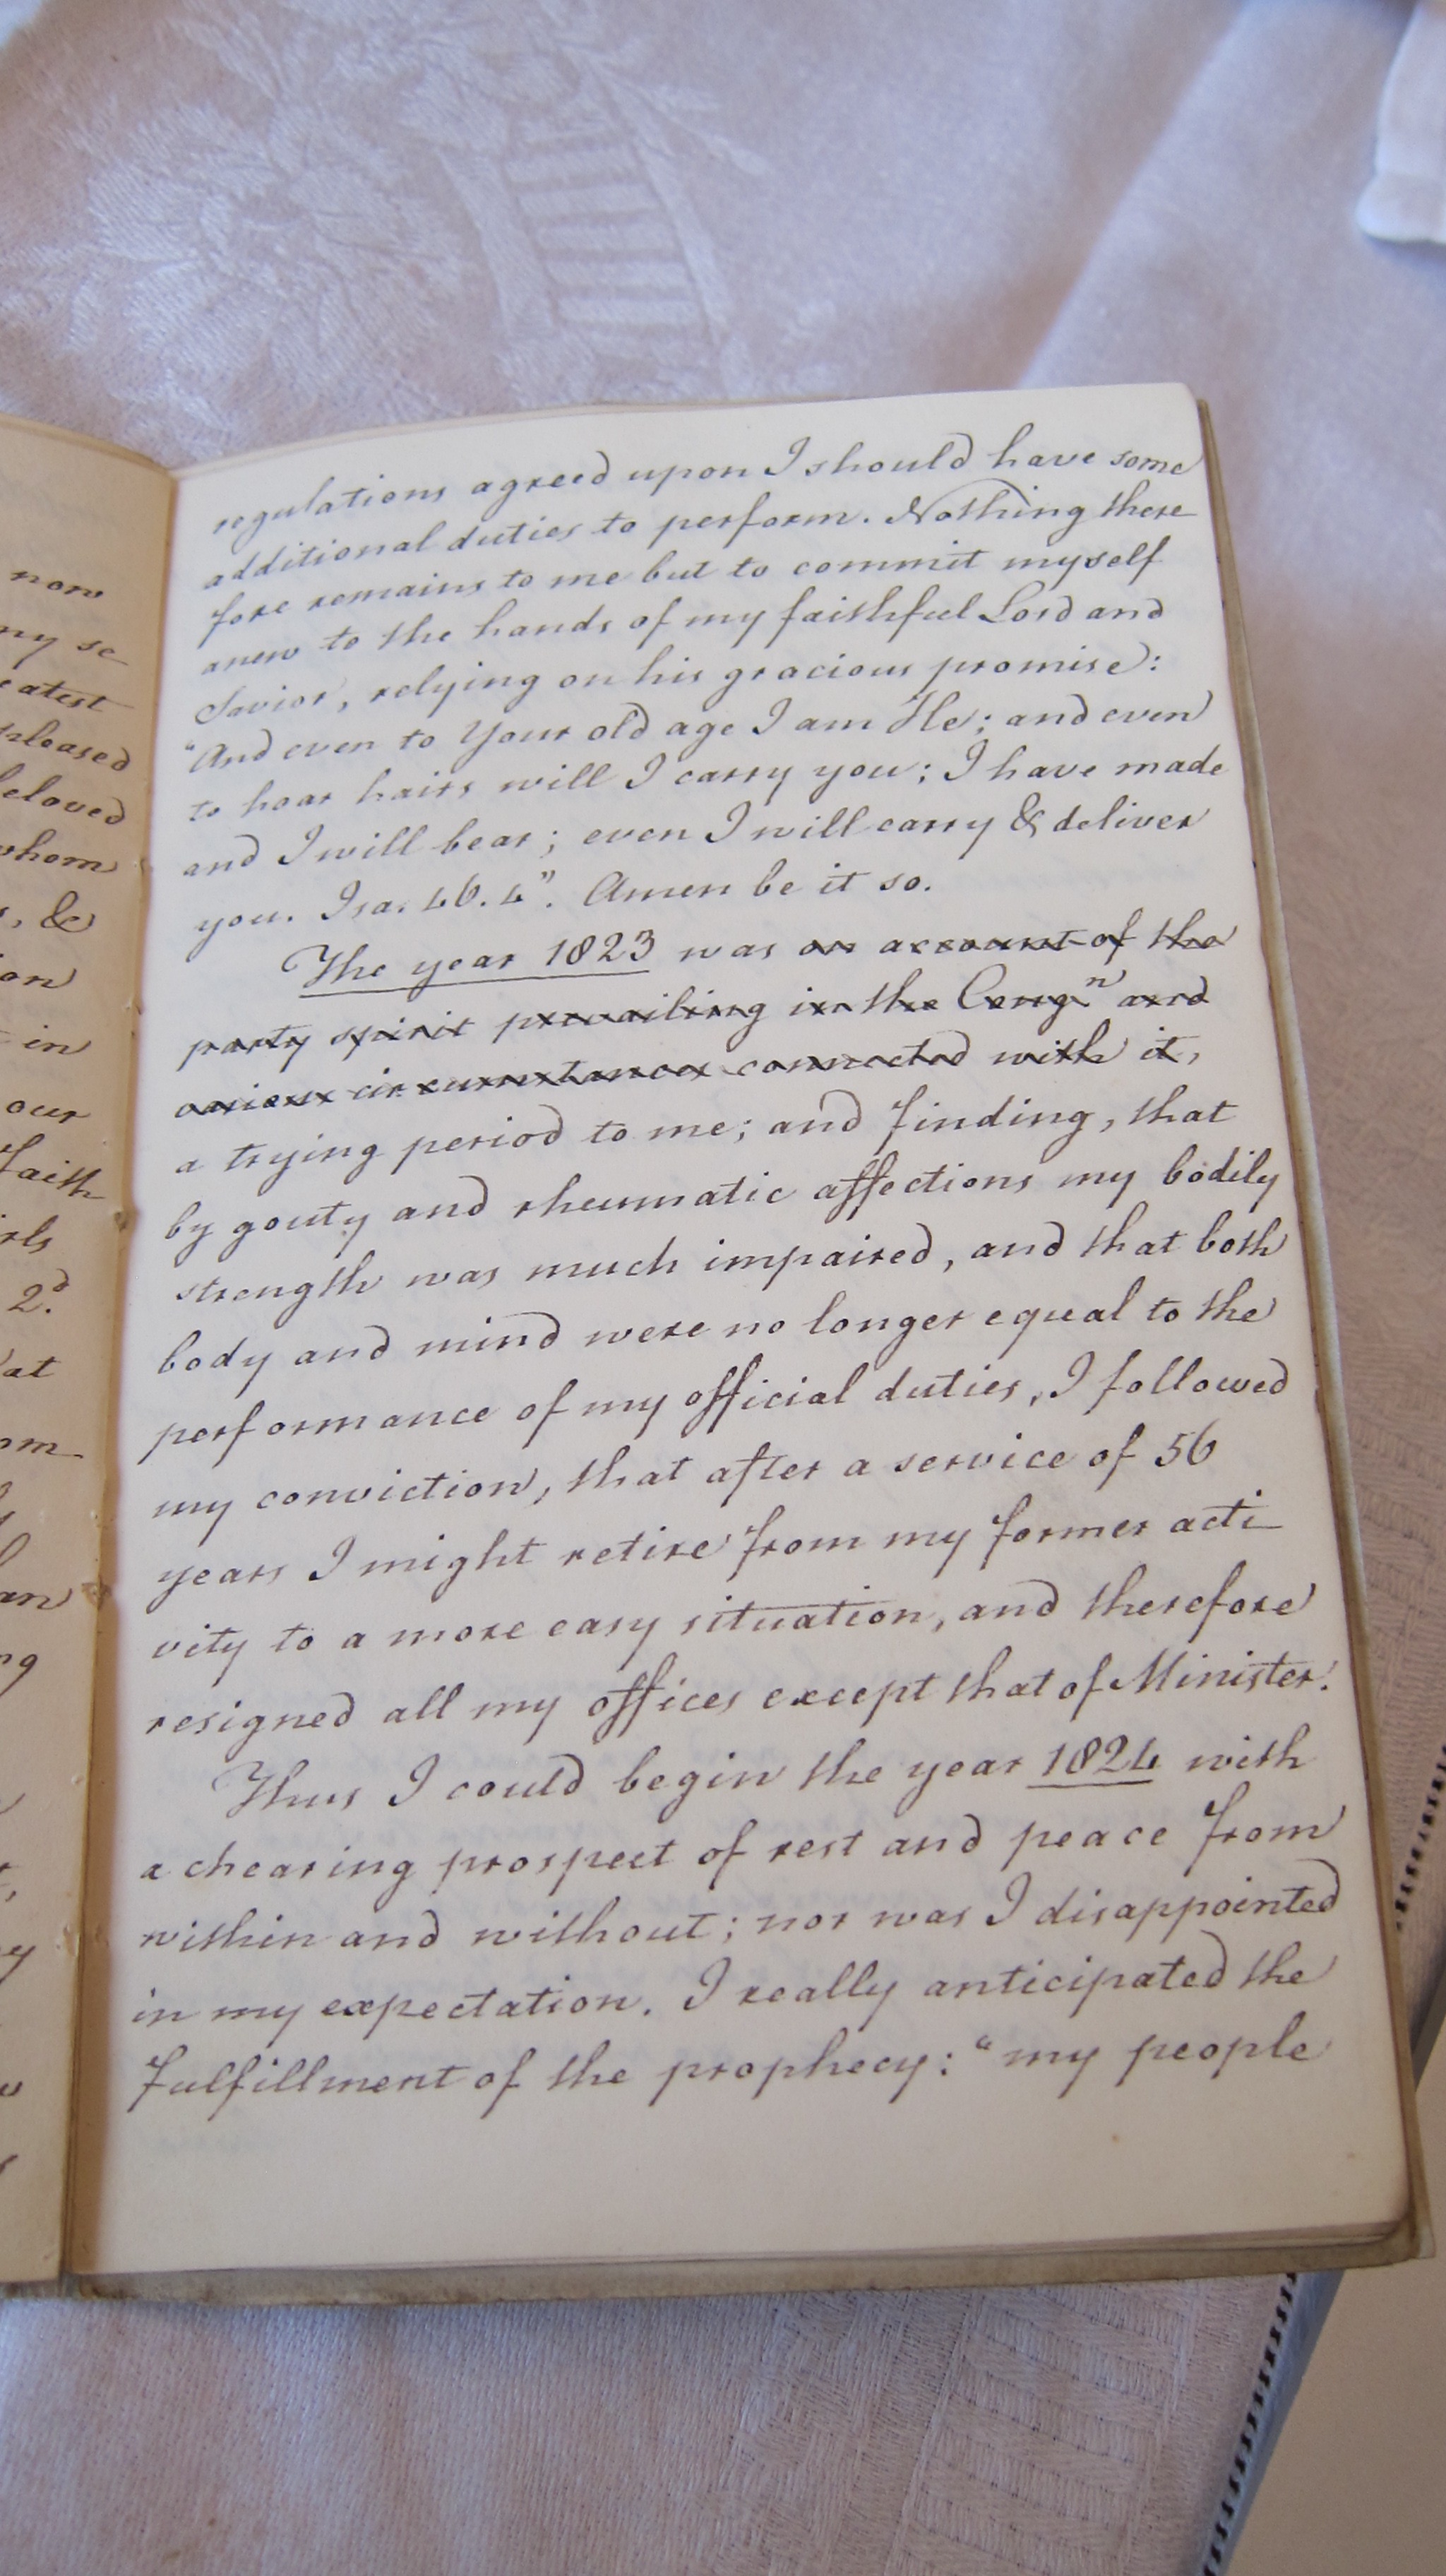 now
my se
eatest
pleased
beloved
whom
s, &
ion
in
our
Faith
rls
2.d
at
om
an
ng
regulations agreed upon I should have some
additional duties to perform. Nothing there
fore remains to me but to commit myself
anew to the hands of my faithful Lord and
Savior, relying on his gracious promise:
"And even to Your old age I am He; and even
to hoar hairs will I carry you; I have made
and I will bear; even I will carry & deliver
you. Isa. 46. 4". Amen be it so.
The year 1823 was on account of the
party spirit prevailing in the Congn and
various circumstances connected with it,
a trying period to me; and finding, that
by gouty and rheumatic affections my bodily
strength was much impaired, and that both
body and mind were no longer equal to the
performance of my official duties, I followed
my conviction, that after a service of 56
years I might retire from my former acti
vity to a more easy situation, and therefore
resigned all my offices except that of Minister.
Thus I could begin the year 1824 with
a chearing prospect of rest and peace from
within and without; nor was I disappointed
in my expectation. I really anticipated the
fulfillment of the prophecy: "my people